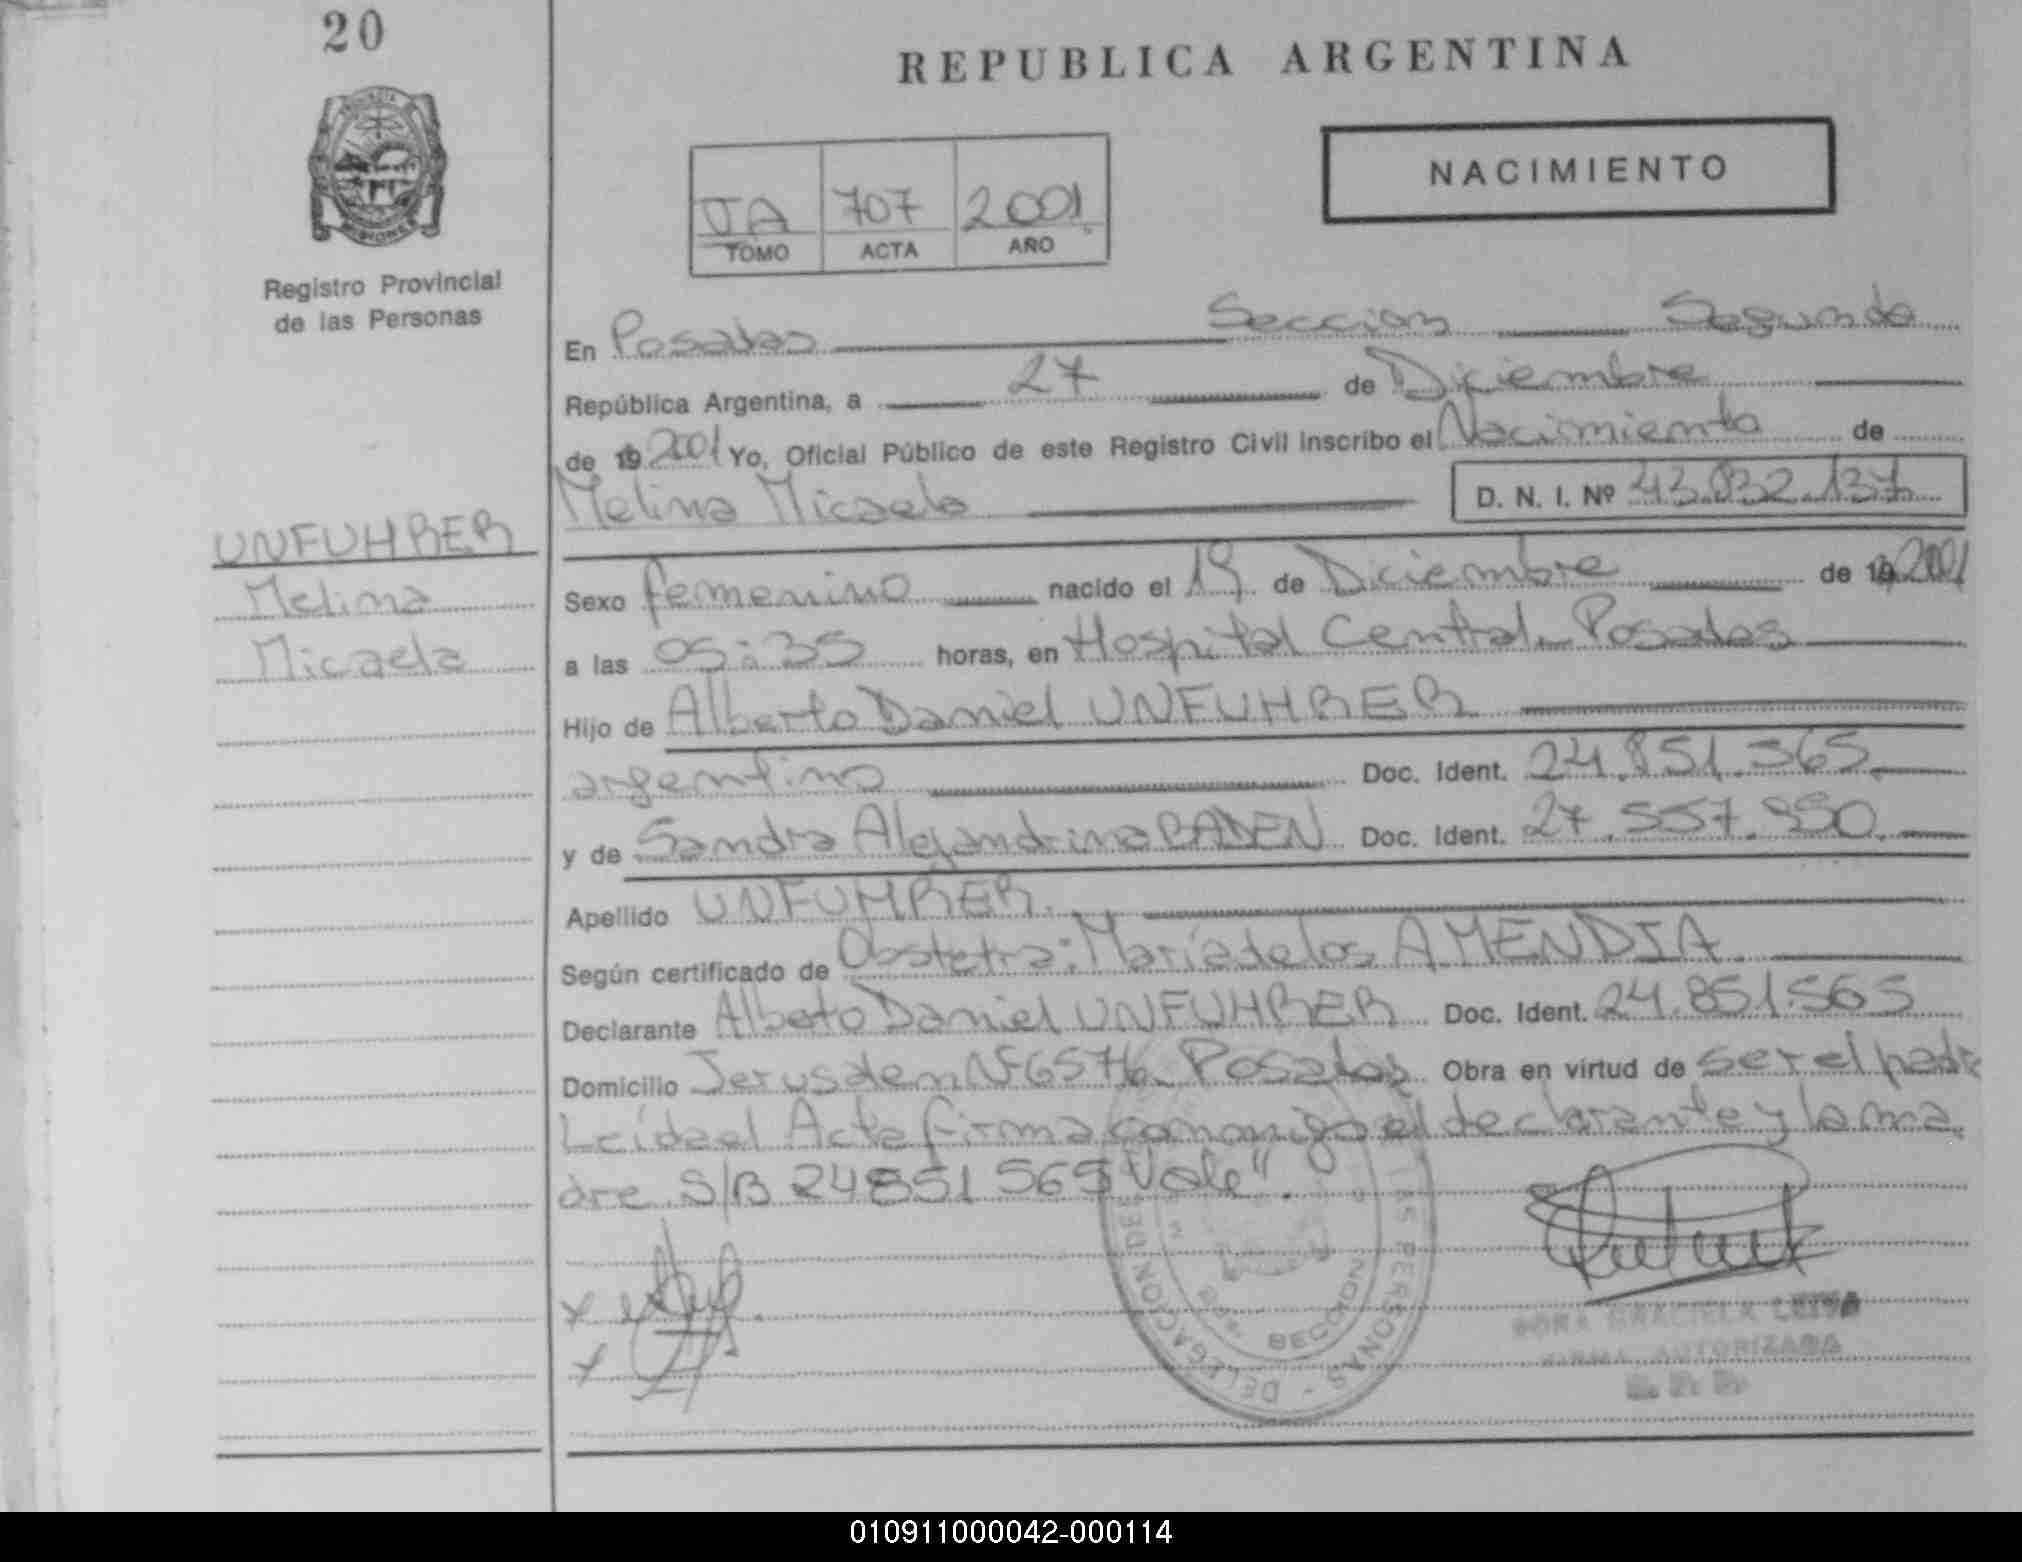 20
REPUBLICA ARGENTINA
PROVINCIA
MISIONES
Registro Provincial
de las Personas
NACIMIENTO
707 2001
TOMO ACTA AÑO
En Posadas Seccion Segunda
República Argentina, a 27 de Diciembre
de 19 2001 Yo, Oficial Público de este Registro Civil inscribo el Nacimiento de
Melina Micaela D. N. I. Nº 43.832.137
UNFUHRER
Melina
Micaela
Sexo femenino nacido el 19 de Diciembre de 19 2001
a las 05:35 horas, en Hospital Central. Posadas
Hijo de Alberto Daniel UNFUHRER
argentino Doc. Ident. 24.851.565
y de Sandra Alejandrina BADEN Doc. Ident. 27.557.950.
Apellido UNFUHRER.
Según certificado de Obstetra: Maria de los A. MENDIA
Declarante Alberto Daniel UNFUHRER Doc. Ident. 24.851565
Domicilio Jerusalem Nº 6576. Posadas Obra en virtud de ser el padre
Leida el Acta firma conmigo el declarante y la ma
dre S/B 24851565 "Vale".
DELEGACION SECCION
LAS PERSONAS - DELEGACION
GRACIELA LEIVA
FIRMA AUTORIZADA
R. P. P.
010911000042-000114